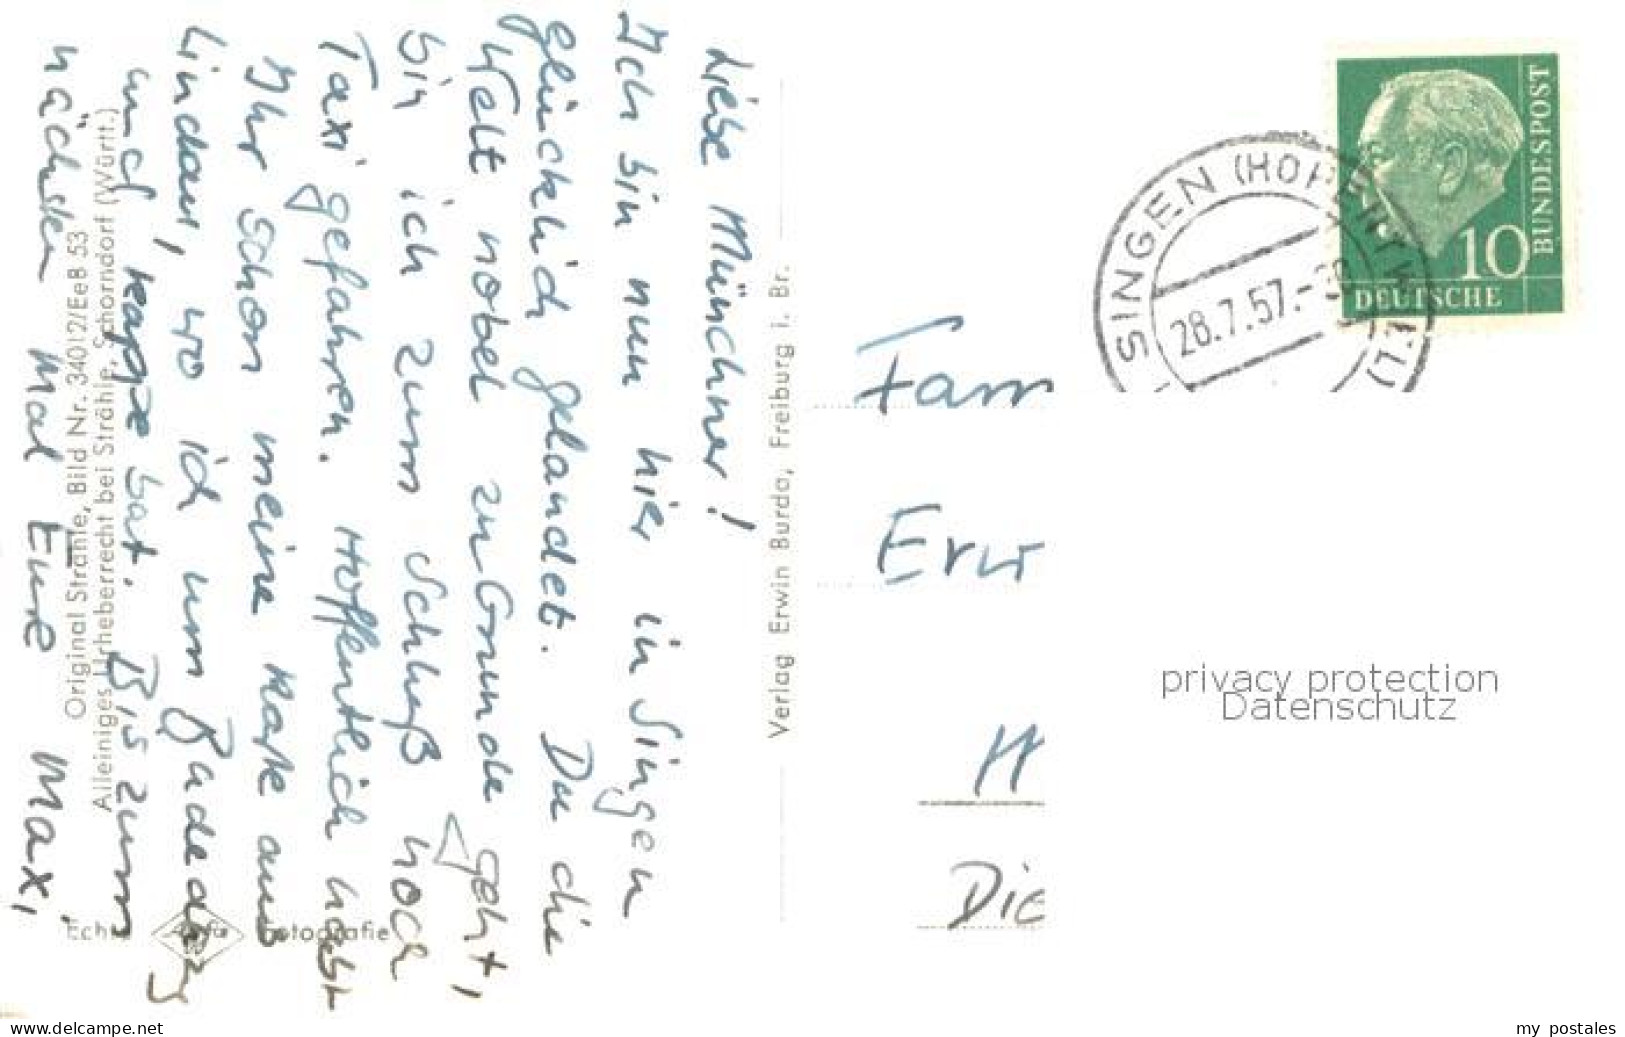 Liebe Münchner!
Ich bin nun hier in Singen
glücklich gelandet. Da die
Welt nobel zu Grunde geht,
bin ich zum Schluß noch
Taxi gefahren. Hoffentlich habt
Ihr schon meine Karte aus
Lindau, wo ich um
und bat. Bis zum
nächsten Mal Eure Maxi
Original Strähle, Bild Nr. 34012/EeB 53
Alleiniges Urheberrecht bei Strähle, Schorndorf (Württ.)
Echte Agfa Fotografie
Verlag Erwin Burda, Freiburg i. Br.
SINGEN (HOHENTWIEL)
28.7.57.-
10
DEUTSCHE
BUNDESPOST
Fam
Erw
H
Die
privacy protection
Datenschutz
www.delcampe.net
my postales